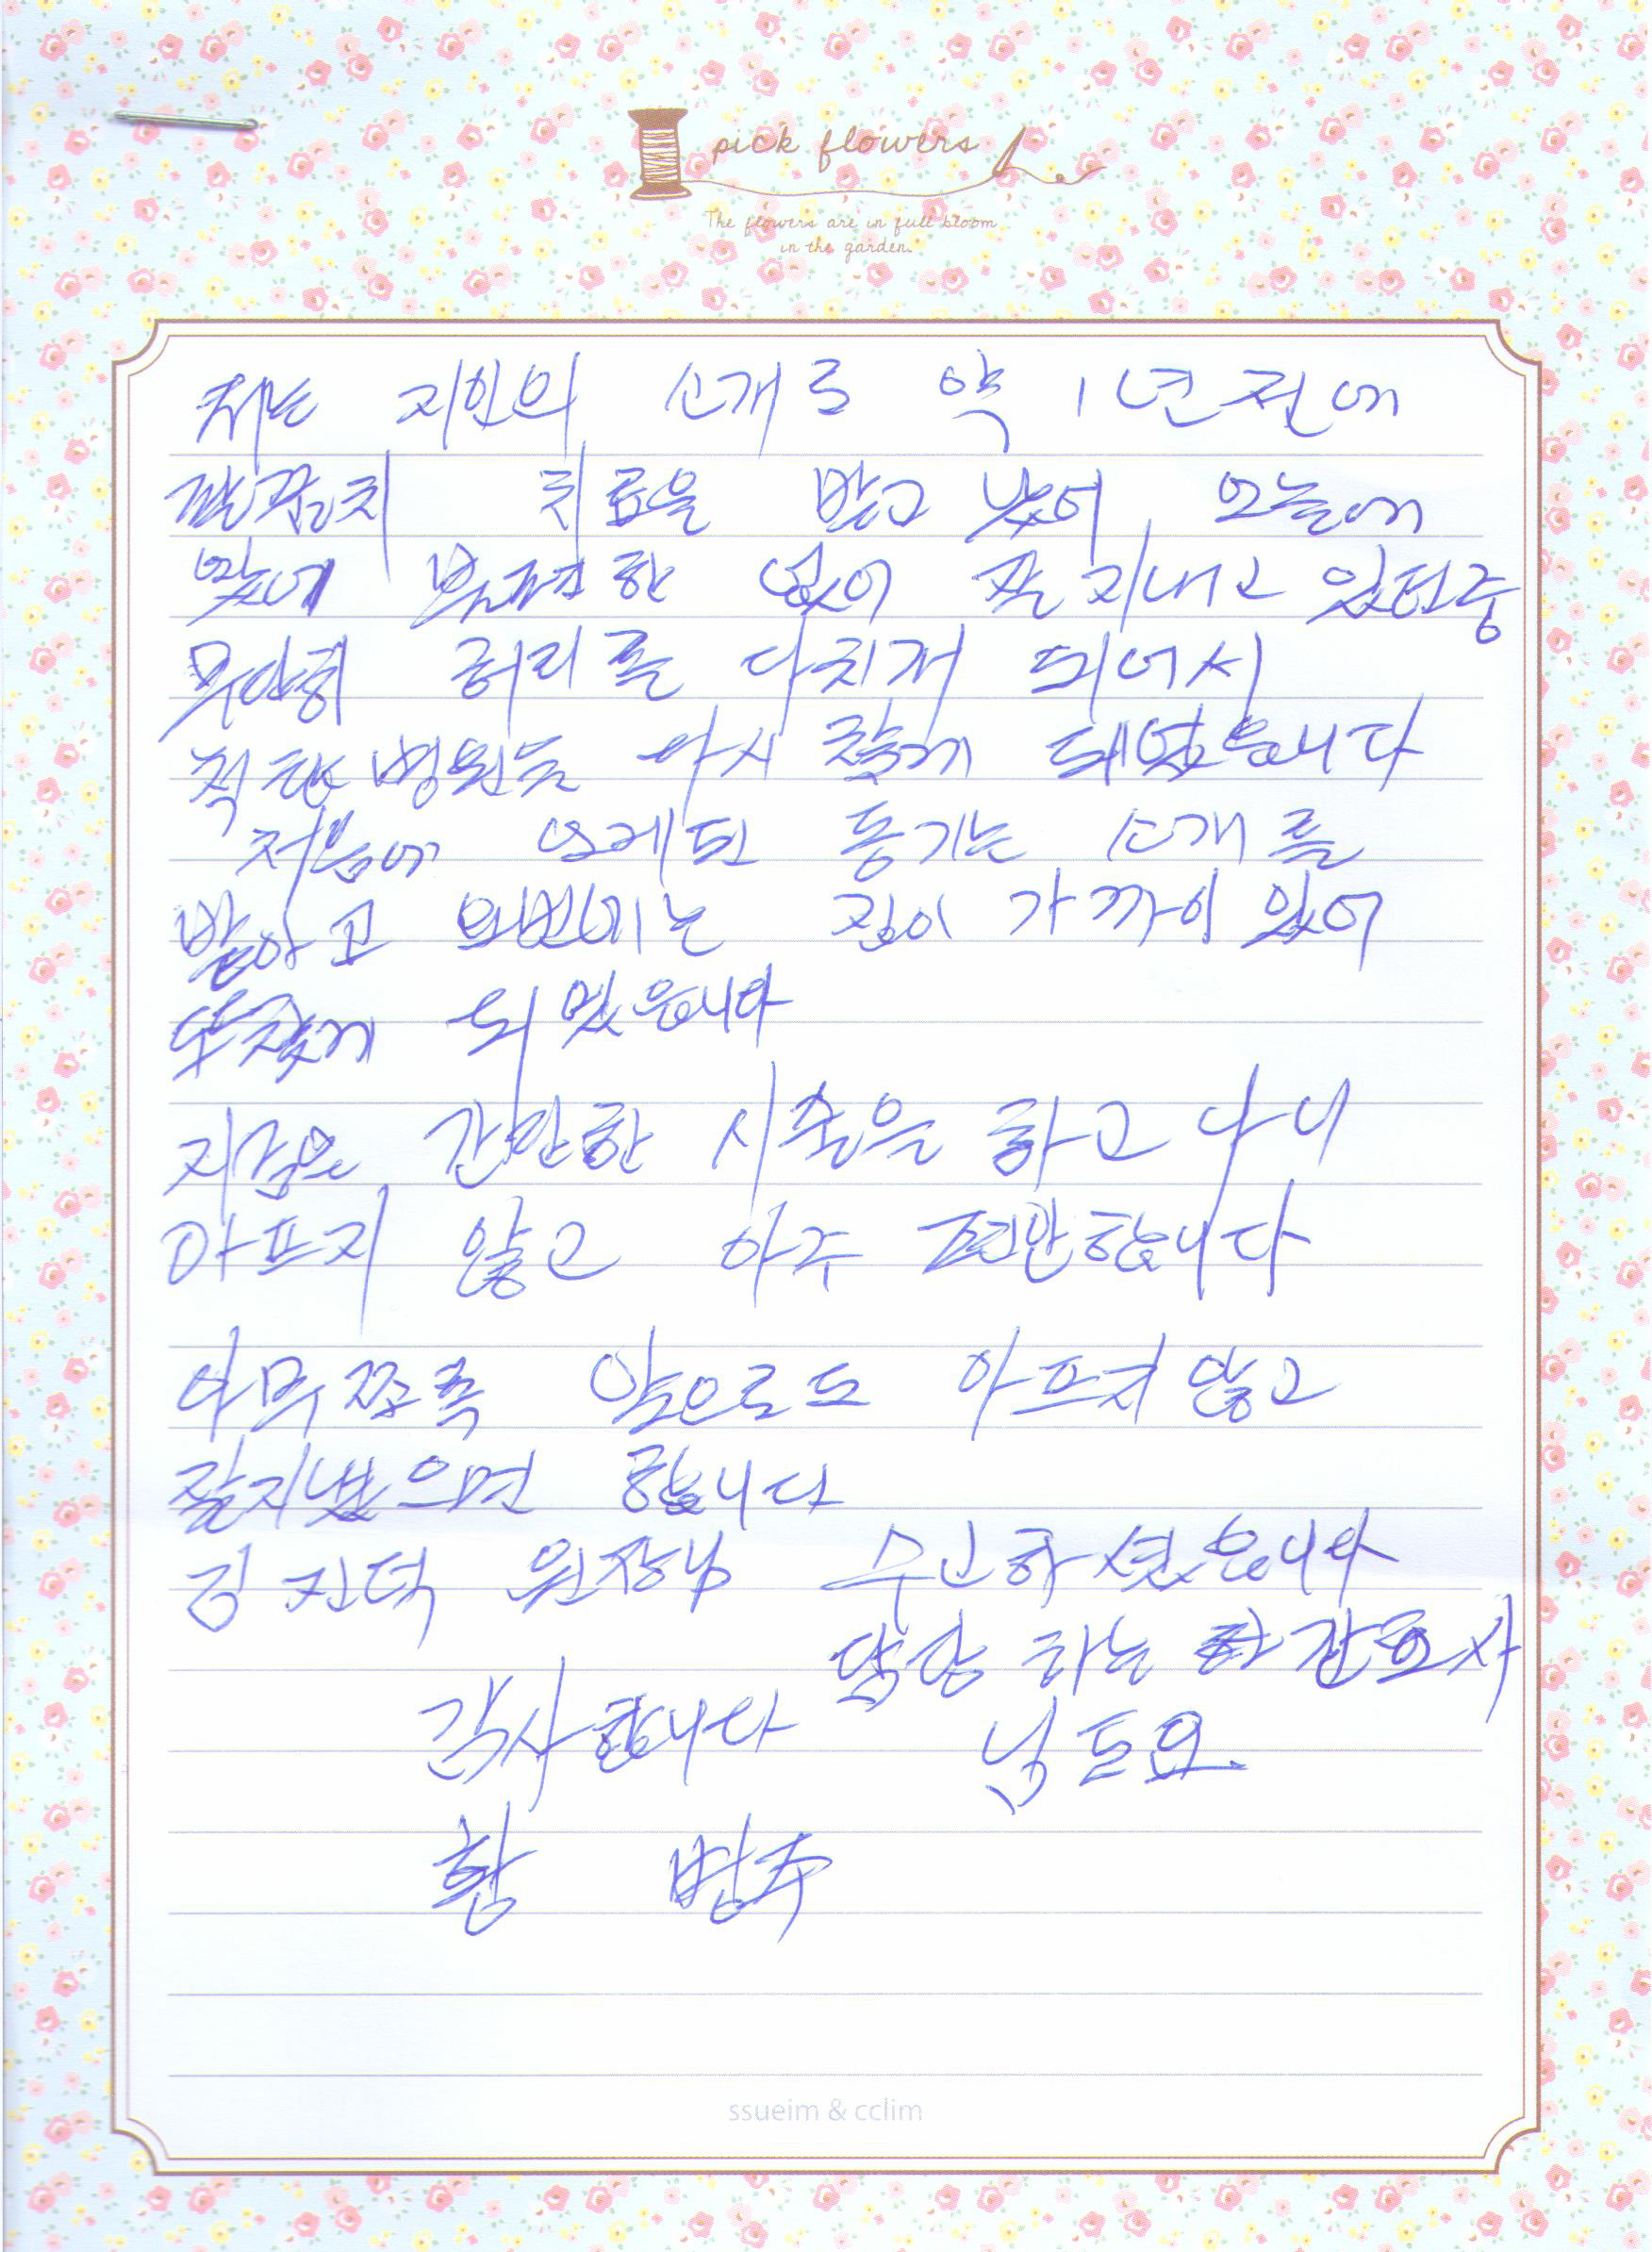 pick flowers
The flowers are in full bloom
in the garden.
저는 지인의 소개로 약 1년전에
팔꿈치 치료을 받고 낳어 오늘에
불편한 없이 잘 지내고 있던중
우연히 허리를 다치게 되어서
척탑병원을 다시 찾게 돼었읍니다
처음에 오게된 동기는 소개를
받아고 이번에는 집이 가까이 있어
또 찾게 되었읍니다
지금은 간단한 시술을 하고 나니
아프지 않고 아주 편안합니다
아무쪼록 앞으로도 아프지 않고
잘지냈으면 합니다
김진덕 원장님 수고하셨읍니다
담당 하는 간호사
감사합니다 님도요.
황 범주
ssueim & cclim